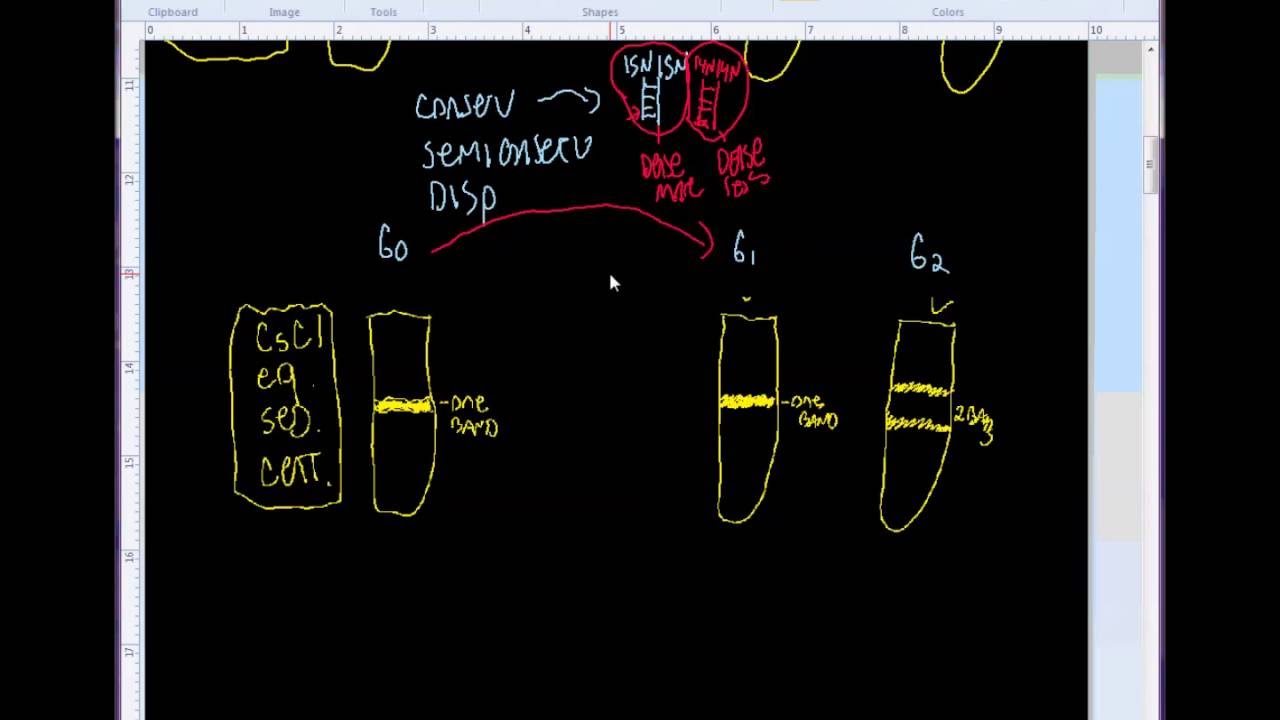 Clipboard Image Tools Shapes Colors
0 1 2 3 4 5 6 7 8 9 10
11
12
13
14
15
16
17
15N 15N 14N 14N
conserv
semiconserv
DISP
DENSE MORE
DENSE LESS
G0 G1 G2
CsCl
eq.
sed.
cent.
ONE BAND
ONE BAND
2 BANDS